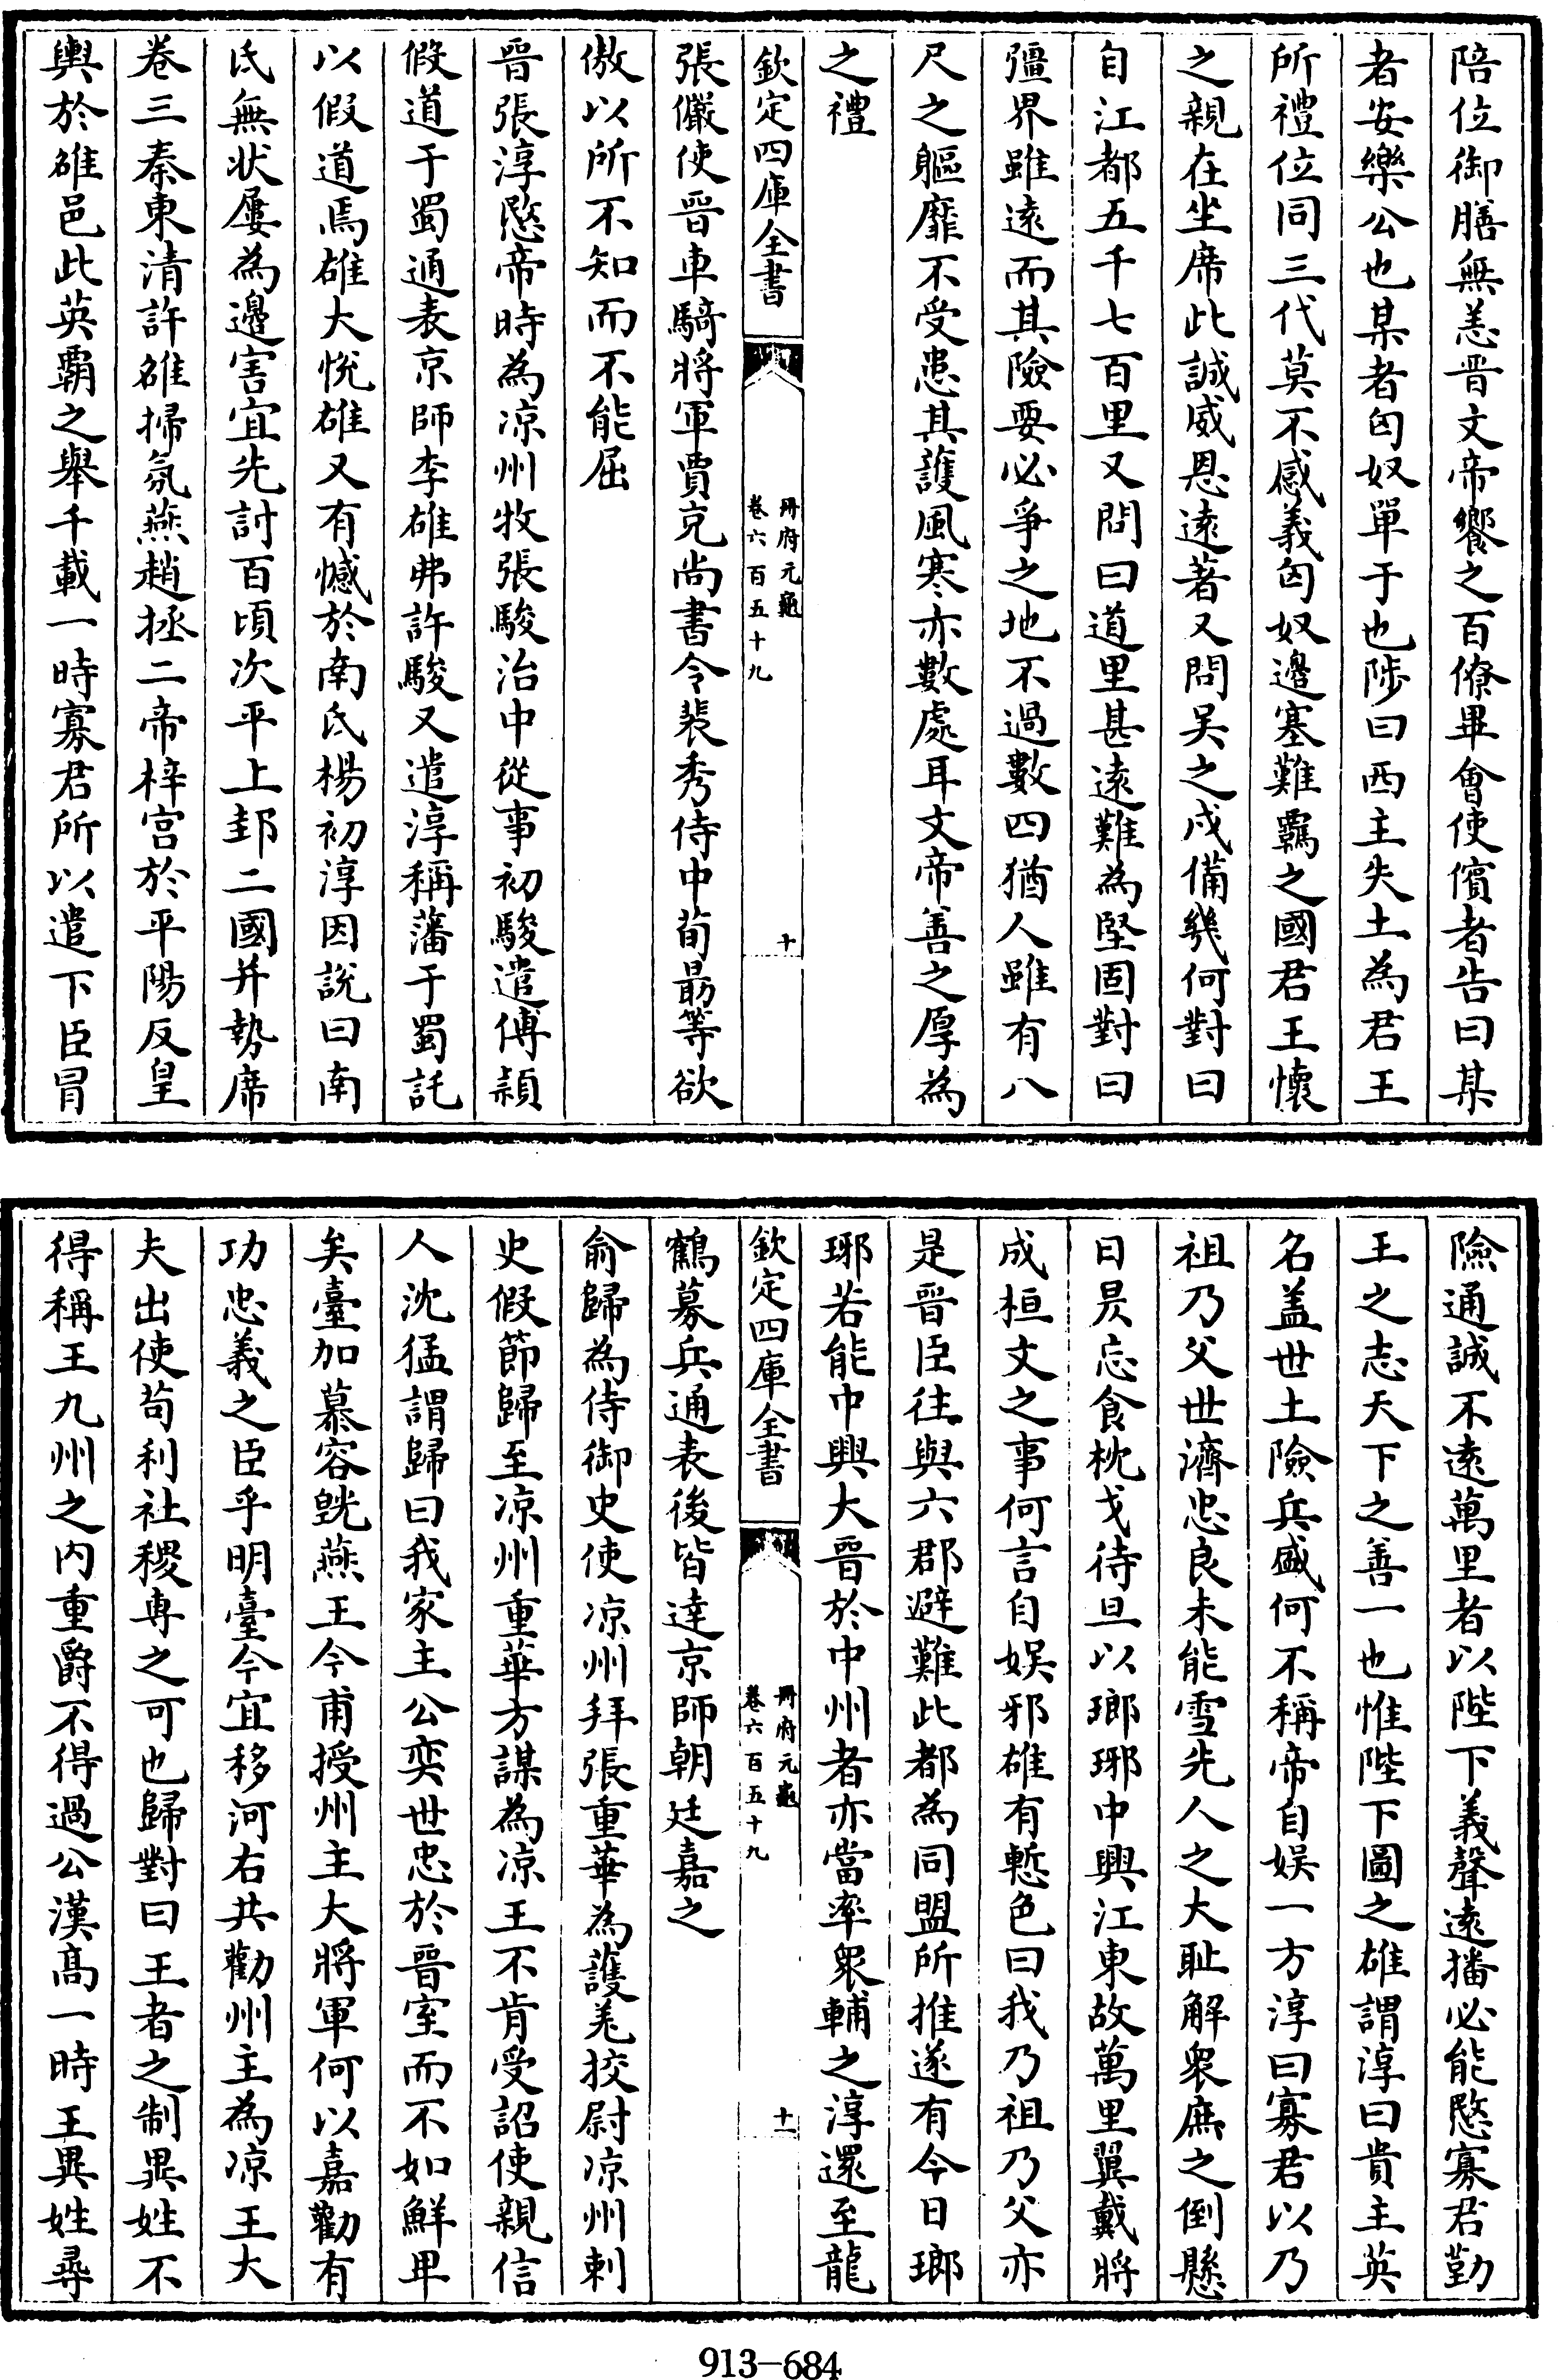 陪位御膳無恙晋文帝饗之百僚畢會使儐者告曰某
者安樂公也某者匈奴單于也陟曰西主失土為君王
所禮位同三代莫不感義匈奴邊塞難羈之國君王懷
之親在坐席此誠威恩遠著又問吴之戍備幾何對曰
自江都五千七百里又問曰道里甚遠難為堅固對曰
彊界雖遠而其險要必爭之地不過數四猶人雖有八
尺之軀靡不受患其護風寒亦數處耳文帝善之厚為
之禮
欽定四庫全書
冊府元龜
卷六百五十九
十
張儼使晋車騎將軍賈充尚書令裴秀侍中荀勗等欲
傲以所不知而不能屈
晋張淳愍帝時為凉州牧張駿治中從事初駿遣傅頴
假道于蜀通表京師李雄弗許駿又遣淳稱藩于蜀託
以假道焉雄大悅雄又有憾於南氐楊初淳因說曰南
氐無狀屢為邊害宜先討百頃次平上邽二國并勢席
卷三秦東清許雒掃氛燕趙拯二帝梓宫於平陽反皇
輿於雒邑此英覇之舉千載一時寡君所以遣下臣冒
險通誠不遠萬里者以陛下義聲遠播必能愍寡君勤
王之志天下之善一也惟陛下圖之雄謂淳曰貴主英
名盖世土險兵盛何不稱帝自娛一方淳曰寡君以乃
祖乃父世濟忠良未能雪先人之大耻解衆庶之倒懸
日昃忘食枕戈待旦以瑯琊中興江東故萬里翼戴將
成桓文之事何言自娛邪雄有慙色曰我乃祖乃父亦
是晋臣往與六郡避難此都為同盟所推遂有今日瑯
琊若能中興大晋於中州者亦當率衆輔之淳還至龍
欽定四庫全書
冊府元龜
卷六百五十九
十一
鶴募兵通表後皆達京師朝廷嘉之
俞歸為侍御史使凉州拜張重華為護羌挍尉凉州刺
史假節歸至凉州重華方謀為凉王不肯受詔使親信
人沈猛謂歸曰我家主公奕世忠於晋室而不如鮮卑
矣臺加慕容皝燕王今甫授州主大將軍何以嘉勸有
功忠義之臣乎明臺今宜移河右共勸州主為凉王大
夫出使苟利社稷專之可也歸對曰王者之制異姓不
得稱王九州之内重爵不得過公漢高一時王異姓尋
913-684